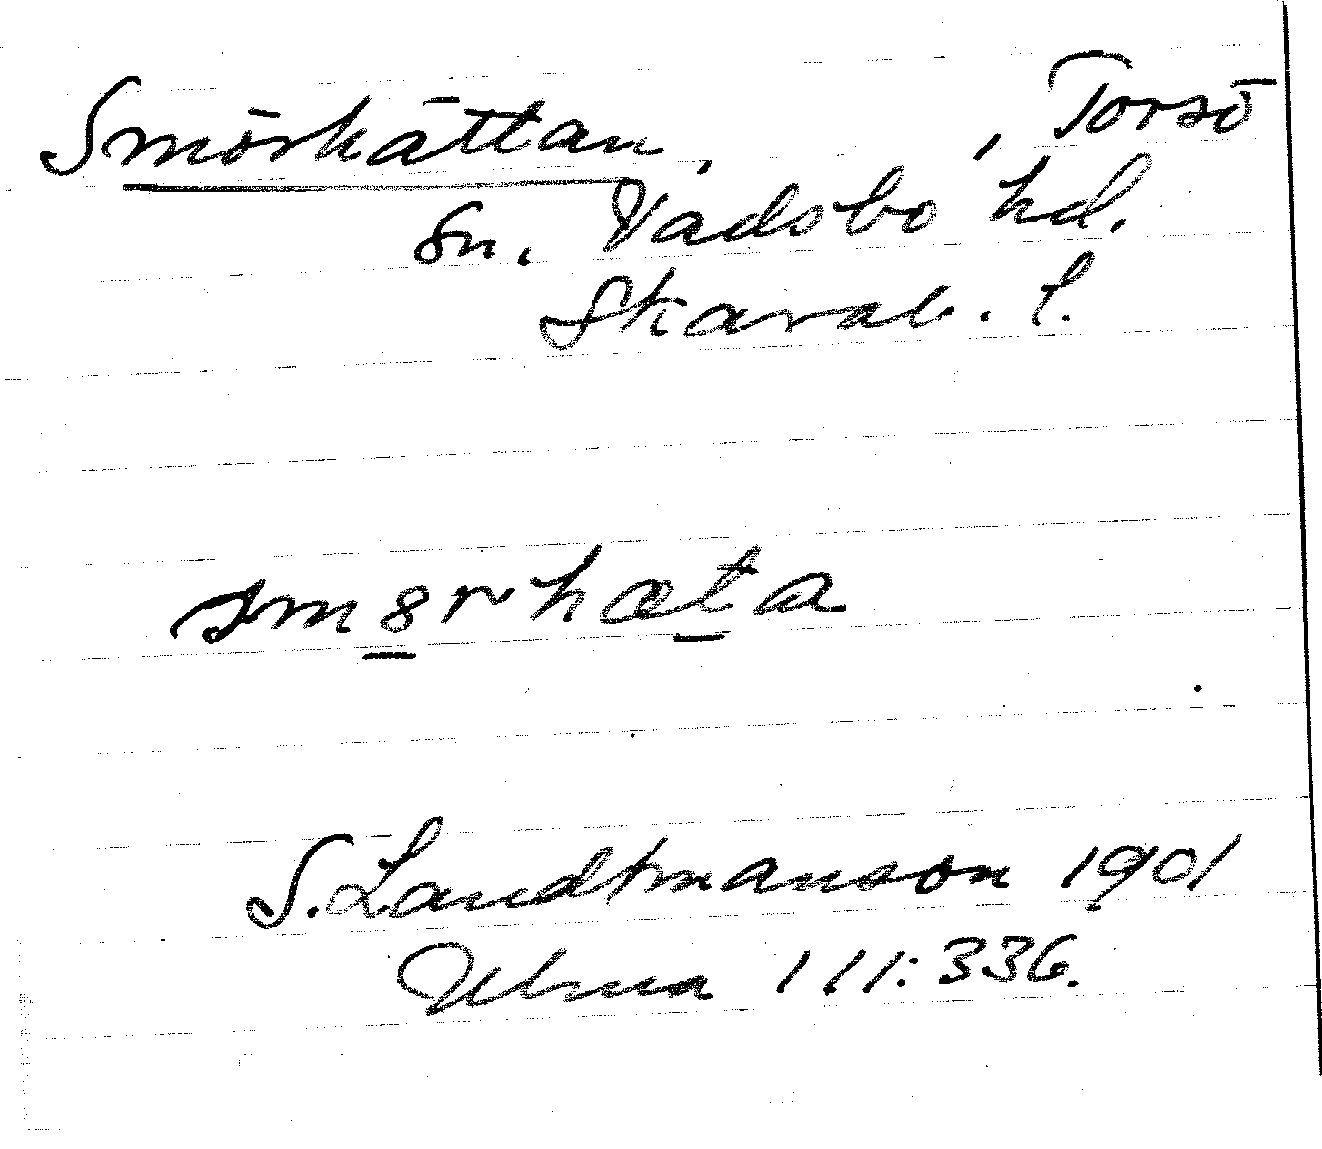 Smörhättan, , Torsö
sn. Vadsbo hd.
Skarab. l.
sm8rhæta
S. Landtmanson 1901
Ulma 111:336.